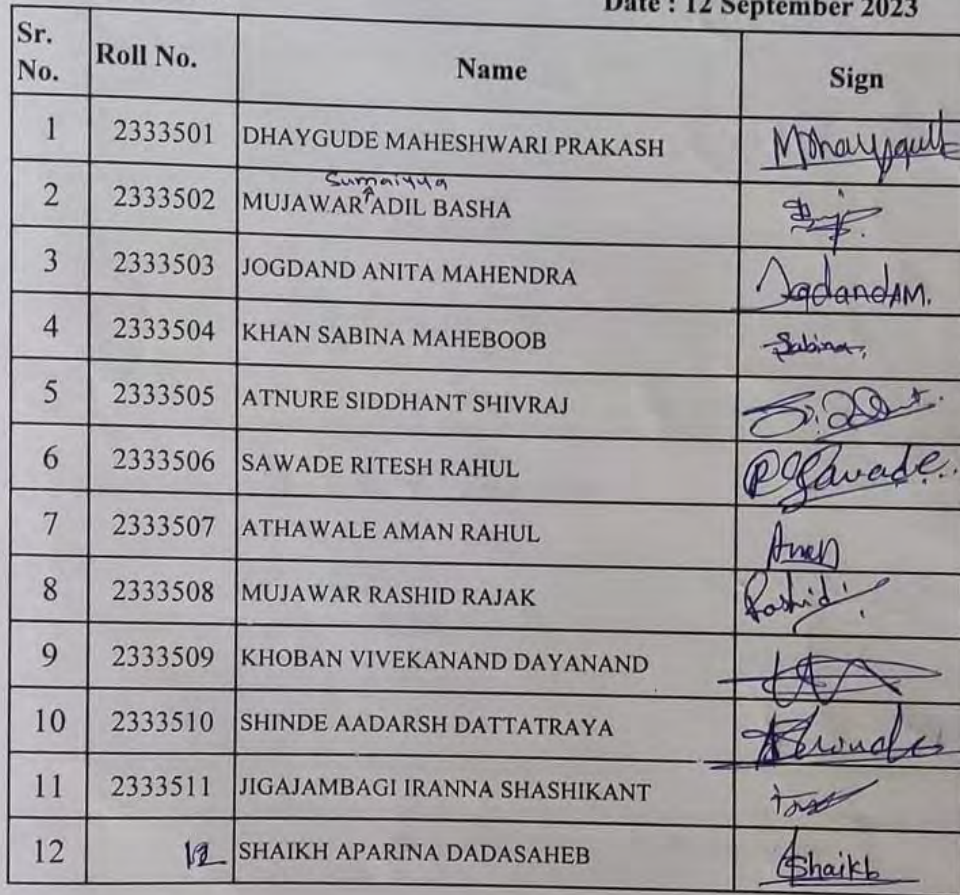 Date : 12 September 2023
Sr. No. Roll No. Name Sign
1 2333501 DHAYGUDE MAHESHWARI PRAKASH
Sumaiyya
2 2333502 MUJAWAR ADIL BASHA
3 2333503 JOGDAND ANITA MAHENDRA JogdandAM.
4 2333504 KHAN SABINA MAHEBOOB Sabina
5 2333505 ATNURE SIDDHANT SHIVRAJ
6 2333506 SAWADE RITESH RAHUL
7 2333507 ATHAWALE AMAN RAHUL
8 2333508 MUJAWAR RASHID RAJAK Rashid
9 2333509 KHOBAN VIVEKANAND DAYANAND
10 2333510 SHINDE AADARSH DATTATRAYA
11 2333511 JIGAJAMBAGI IRANNA SHASHIKANT
12 12 SHAIKH APARINA DADASAHEB Shaikh